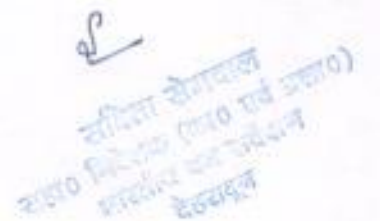 सविता सेमवाल
सहा० निदेशक (का० एवं प्रशा०)
भारतीय वन सर्वेक्षण
देहरादून